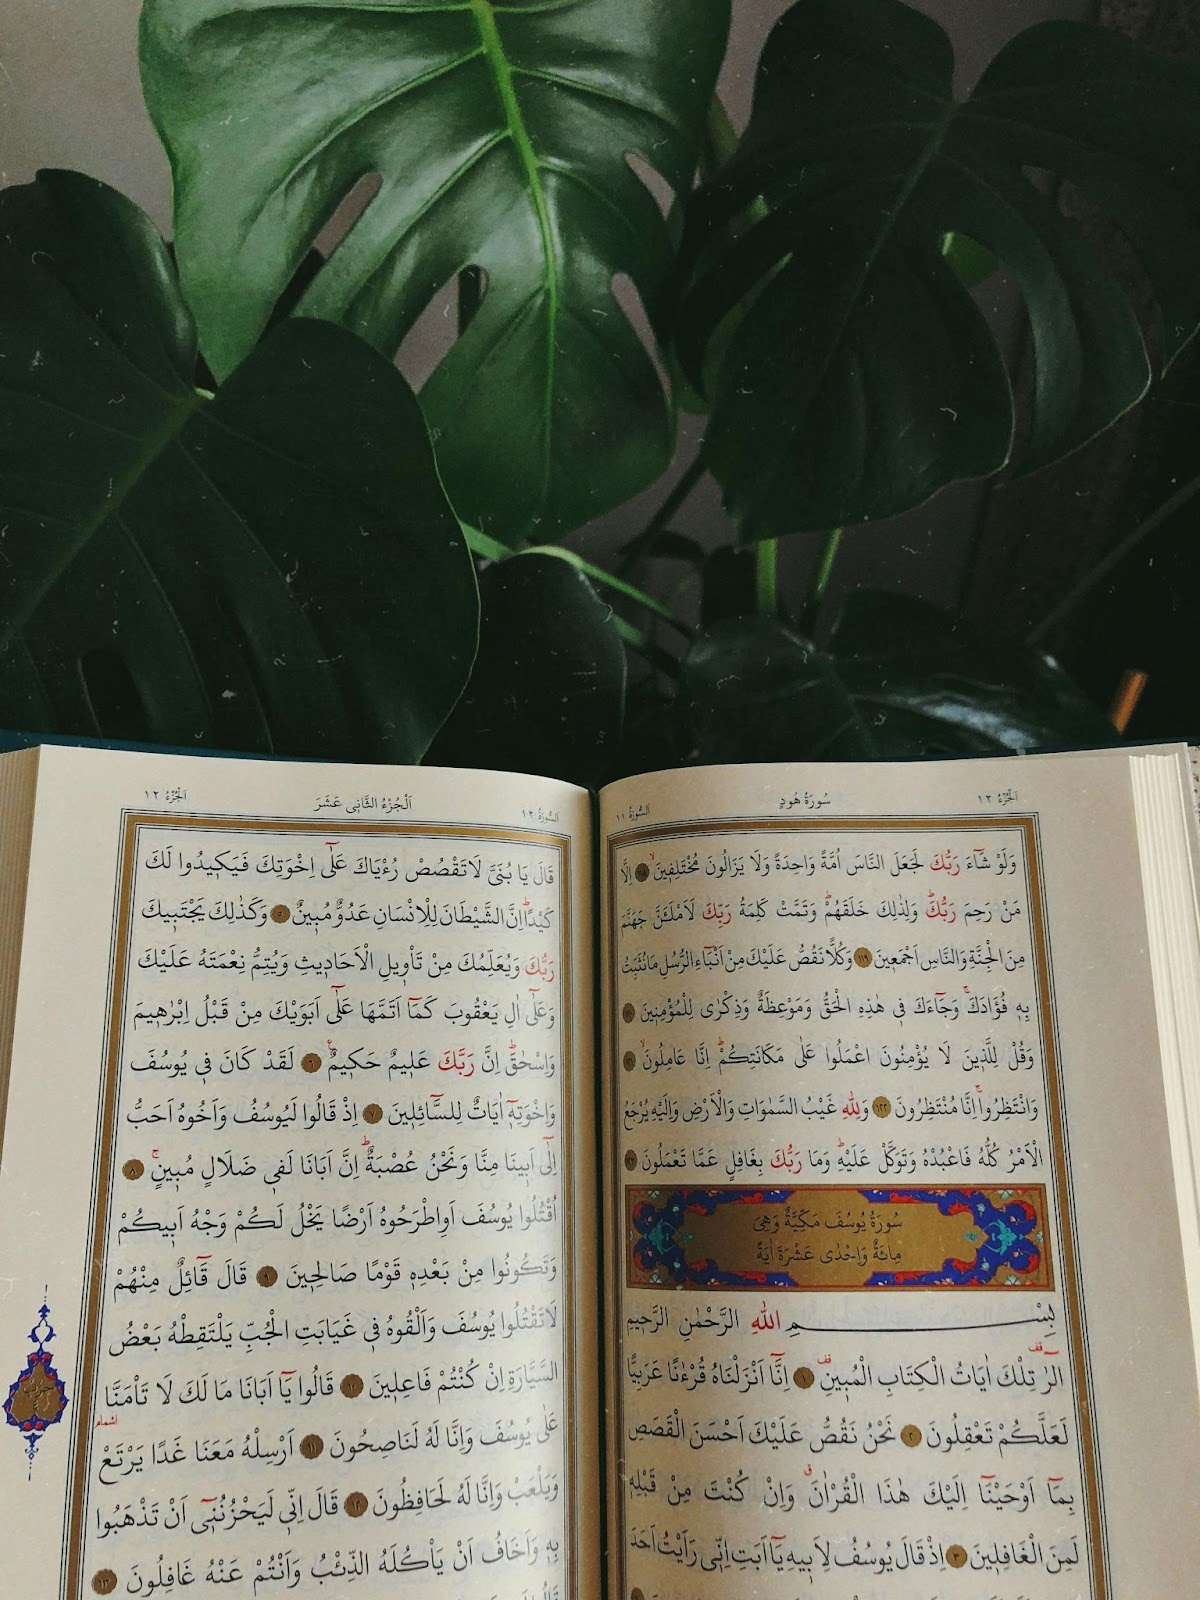 اَلْجُزْءُ ١٢
سُورَةُ هُودٍ
اَلسُّورَةُ ١١
وَلَوْ شَآءَ رَبُّكَ لَجَعَلَ النَّاسَ اُمَّةً وَاحِدَةً وَلَا يَزَالُونَ مُخْتَلِف۪ينَۙ ١١٨ اِلَّا
مَنْ رَحِمَ رَبُّكَۜ وَلِذٰلِكَ خَلَقَهُمْۜ وَتَمَّتْ كَلِمَةُ رَبِّكَ لَاَمْلَـَٔنَّ جَهَنَّمَ
مِنَ الْجِنَّةِ وَالنَّاسِ اَجْمَع۪ينَ ١١٩ وَكُلًّا نَقُصُّ عَلَيْكَ مِنْ اَنْبَٓاءِ الرُّسُلِ مَا نُثَبِّتُ
بِه۪ فُؤٰادَكَۚ وَجَٓاءَكَ ف۪ي هٰذِهِ الْحَقُّ وَمَوْعِظَةٌ وَذِكْرٰى لِلْمُؤْمِن۪ينَ ١٢٠
وَقُلْ لِلَّذ۪ينَ لَا يُؤْمِنُونَ اعْمَلُوا عَلٰى مَكَانَتِكُمْۜ اِنَّا عَامِلُونَۙ ١٢١
وَانْتَظِرُواۚ اِنَّا مُنْتَظِرُونَ ١٢٢ وَلِلّٰهِ غَيْبُ السَّمٰوَاتِ وَالْاَرْضِ وَاِلَيْهِ يُرْجَعُ
الْاَمْرُ كُلُّهُ فَاعْبُدْهُ وَتَوَكَّلْ عَلَيْهِۜ وَمَا رَبُّكَ بِغَافِلٍ عَمَّا تَعْمَلُونَ ١٢٣
سُورَةُ يُوسُفَ مَكِّيَّةٌ وَهِيَ
مِائَةٌ وَاِحْدٰى عَشْرَةَ اٰيَةً
بِسْـــــــــمِ اللّٰهِ الرَّحْمٰنِ الرَّح۪يمِ
الٓرٰ۠ تِلْكَ اٰيَاتُ الْكِتَابِ الْمُب۪ينِ۠ ١ اِنَّٓا اَنْزَلْنَاهُ قُرْءٰنًا عَرَبِيًّا
لَعَلَّكُمْ تَعْقِلُونَ ٢ نَحْنُ نَقُصُّ عَلَيْكَ اَحْسَنَ الْقَصَصِ
بِمَٓا اَوْحَيْنَٓا اِلَيْكَ هٰذَا الْقُرْاٰنَۗ وَاِنْ كُنْتَ مِنْ قَبْلِه۪
لَمِنَ الْغَافِل۪ينَ ٣ اِذْ قَالَ يُوسُفُ لِاَب۪يهِ يَٓا اَبَتِ اِنّ۪ي رَاَيْتُ اَحَدَ
اَلسُّورَةُ ١٢
اَلْجُزْءُ الثَّانِي عَشَرَ
اَلْجُزْءُ ١٢
قَالَ يَا بُنَيَّ لَا تَقْصُصْ رُءْيَاكَ عَلٰٓى اِخْوَتِكَ فَيَك۪يدُوا لَكَ
كَيْدًاۜ اِنَّ الشَّيْطَانَ لِلْاِنْسَانِ عَدُوٌّ مُب۪ينٌ ٥ وَكَذٰلِكَ يَجْتَب۪يكَ
رَبُّكَ وَيُعَلِّمُكَ مِنْ تَأْو۪يلِ الْاَحَاد۪يثِ وَيُتِمُّ نِعْمَتَهُ عَلَيْكَ
وَعَلٰٓى اٰلِ يَعْقُوبَ كَمَٓا اَتَمَّهَا عَلٰٓى اَبَوَيْكَ مِنْ قَبْلُ اِبْرٰه۪يمَ
وَاِسْحٰقَۜ اِنَّ رَبَّكَ عَل۪يمٌ حَك۪يمٌ۟ ٦ لَقَدْ كَانَ ف۪ي يُوسُفَ
وَاِخْوَتِه۪ٓ اٰيَاتٌ لِلسَّٓائِل۪ينَ ٧ اِذْ قَالُوا لَيُوسُفُ وَاَخُوهُ اَحَبُّ
اِلٰٓى اَب۪ينَا مِنَّا وَنَحْنُ عُصْبَةٌۜ اِنَّ اَبَانَا لَف۪ي ضَلَالٍ مُب۪ينٍۚ ٨
اُقْتُلُوا يُوسُفَ اَوِ اطْرَحُوهُ اَرْضًا يَخْلُ لَكُمْ وَجْهُ اَب۪يكُمْ
وَتَكُونُوا مِنْ بَعْدِه۪ قَوْمًا صَالِح۪ينَ ٩ قَالَ قَٓائِلٌ مِنْهُمْ
لَا تَقْتُلُوا يُوسُفَ وَاَلْقُوهُ ف۪ي غَيَابَتِ الْجُبِّ يَلْتَقِطْهُ بَعْضُ
السَّيَّارَةِ اِنْ كُنْتُمْ فَاعِل۪ينَ ١٠ قَالُوا يَٓا اَبَانَا مَا لَكَ لَا تَأْمَنَّا
اشمام
عَلٰى يُوسُفَ وَاِنَّا لَهُ لَنَاصِحُونَ ١١ اَرْسِلْهُ مَعَنَا غَدًا يَرْتَعْ
وَيَلْعَبْ وَاِنَّا لَهُ لَحَافِظُونَ ١٢ قَالَ اِنّ۪ي لَيَحْزُنُن۪ٓي اَنْ تَذْهَبُوا
بِه۪ وَاَخَافُ اَنْ يَأْكُلَهُ الذِّئْبُ وَاَنْتُمْ عَنْهُ غَافِلُونَ ١٣